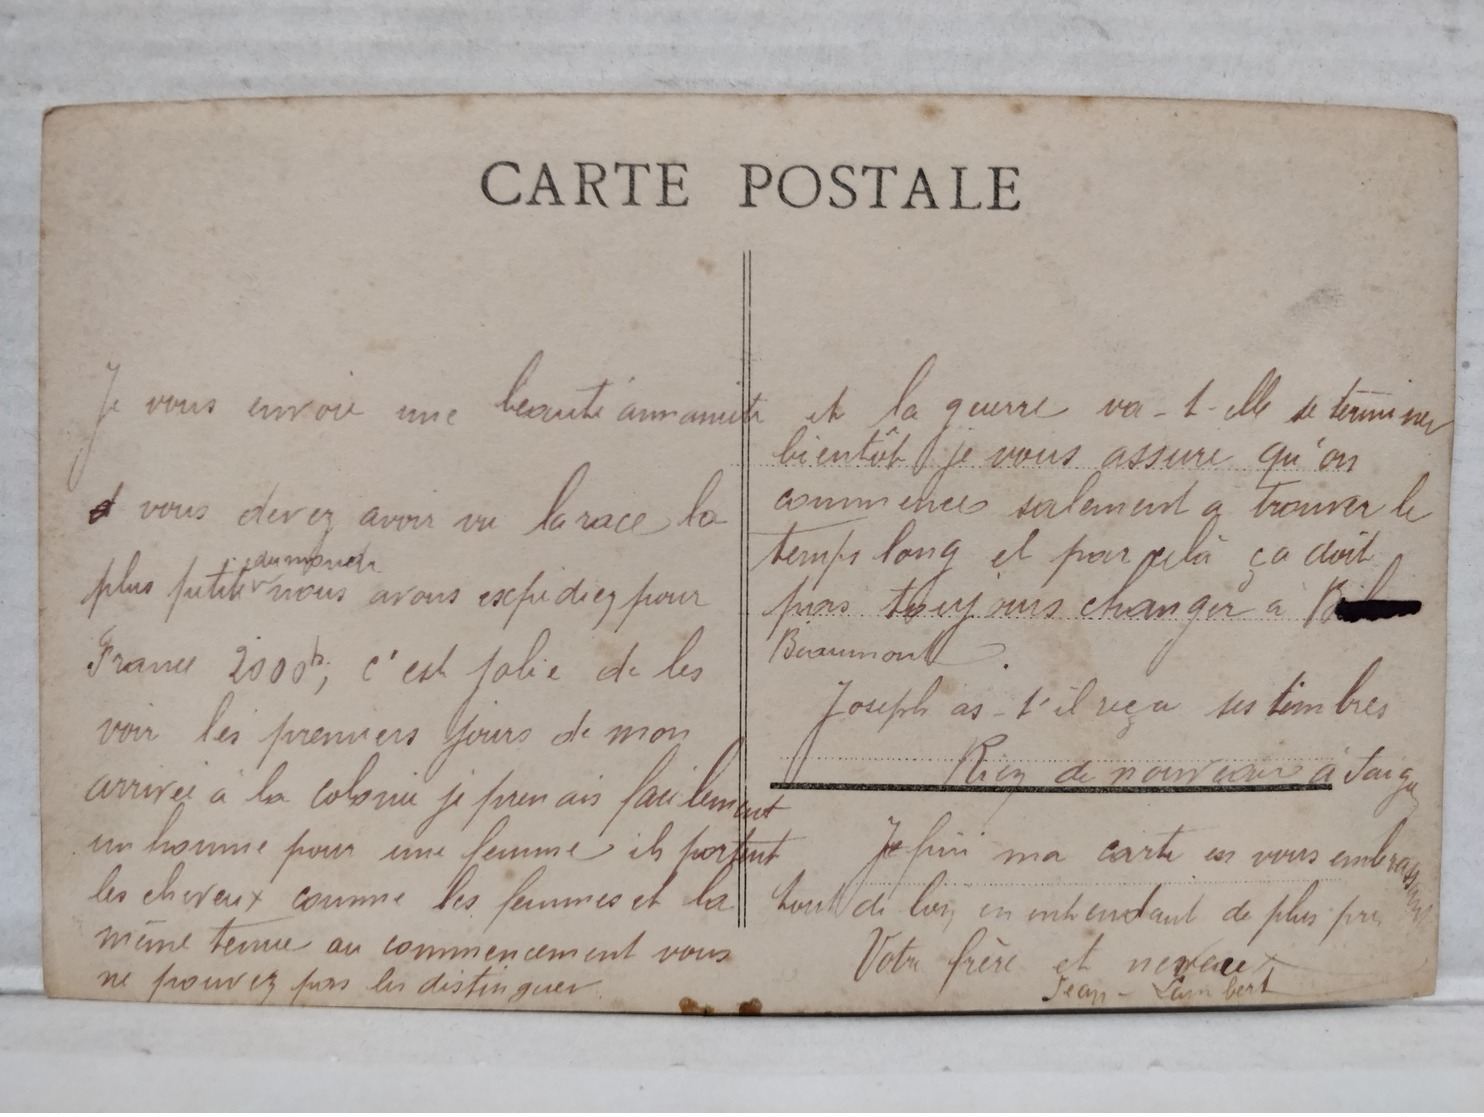 CARTE POSTALE
Je vous envoie une beauté annamite
vous devez avoir vu la race la
plus petite du monde nous avons expediez pour
France 2000 h, c'est jolie de les
voir les premiers jours de mon
arrivée à la colonie je prenais facilement
un homme pour une femme ils portent
les cheveux comme les femmes et la
même tenue au commencement vous
ne pouvez pas les distinguer.
et la guerre va-t-elle se terminer
bientôt je vous assure qu'on
commence salement a trouver le
temps long et par celà ça doit
pas toujours changer a
Beaumont.
Joseph as-t'il reçu ses timbres
Rien de nouveau à
Je fini ma carte en vous embrassant
tout de loin en entendant de plus près
Votre frère et neveu
Jean-Lambert